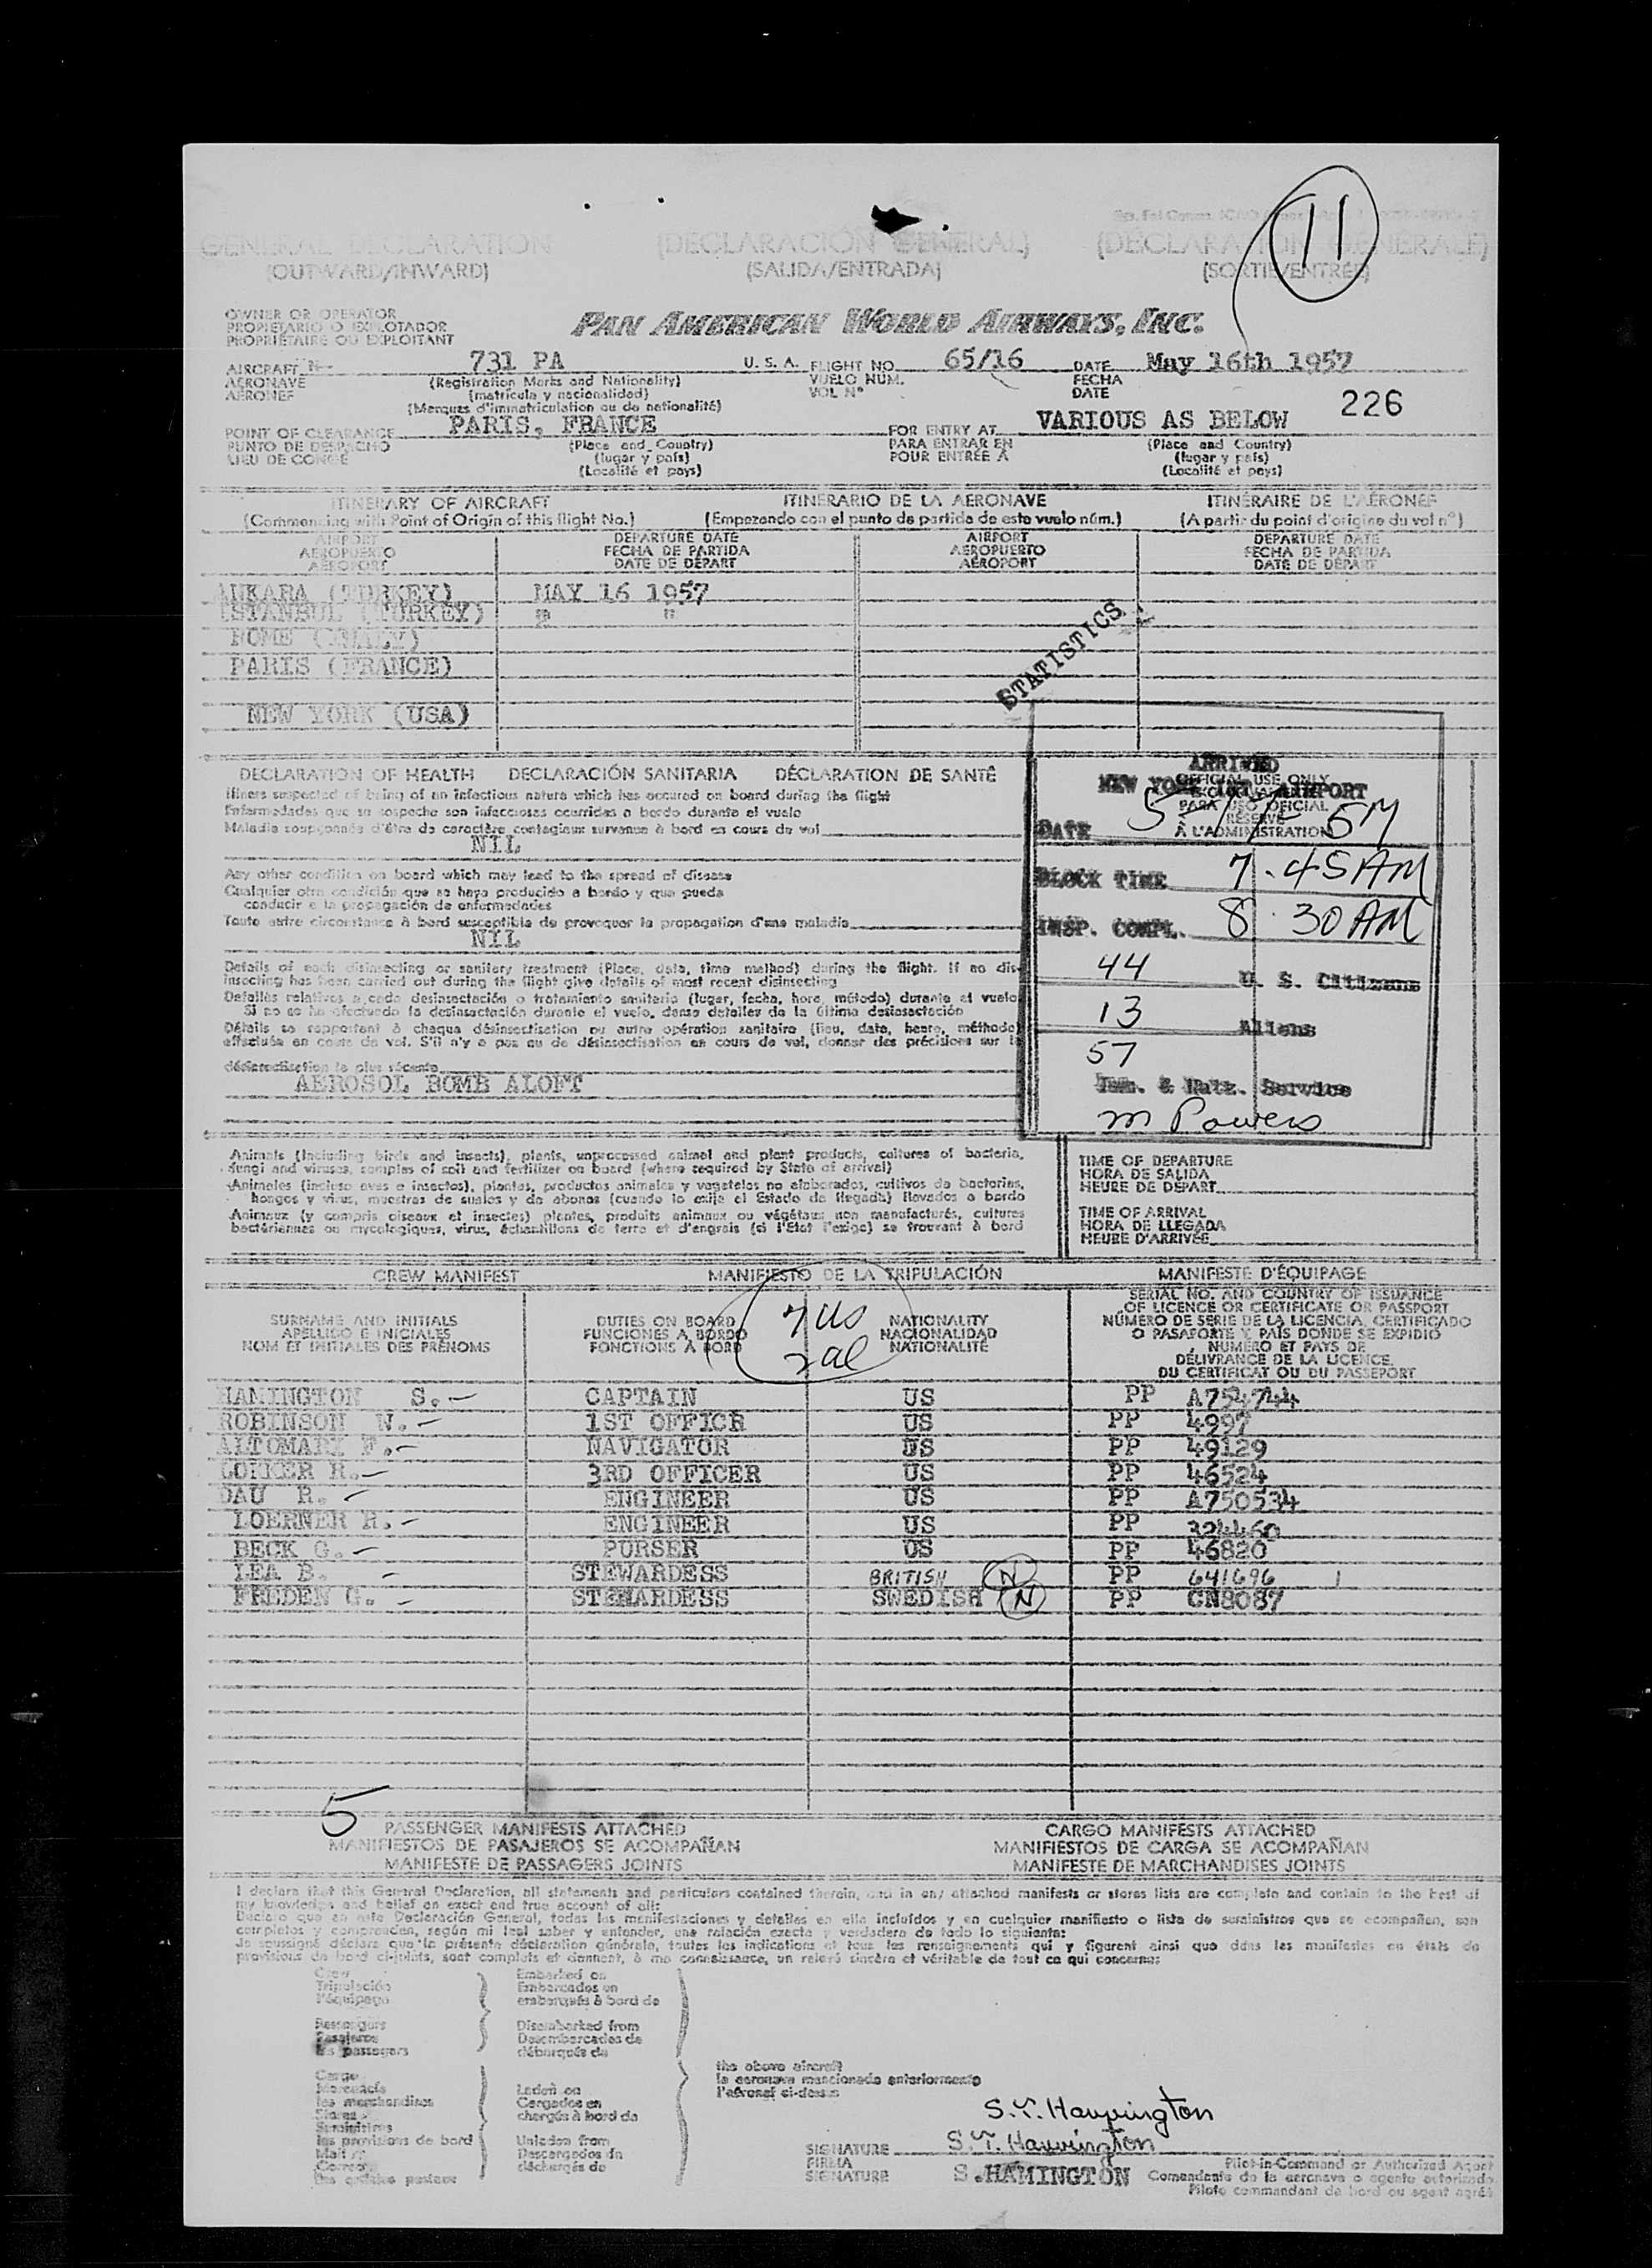 11
GENERAL DECLARATION (DECLARACIÓN GENERAL) (DÉCLARATION GÉNÉRALE)
(OUTWARD/INWARD) (SALIDA/ENTRADA) (SORTIE/ENTRÉE)
OWNER OR OPERATOR
PROPIETARIO O EXPLOTADOR
PROPRIÉTAIRE OU EXPLOITANT
PAN AMERICAN WORLD AIRWAYS, INC.
AIRCRAFT 731 PA U. S. A. FLIGHT NO. 65/16 DATE May 16th 1957
AERONAVE (Registration Marks and Nationality) VUELO NÚM. FECHA
AÉRONEF (matrícula y nacionalidad) VOL Nº DATE
(Marques d'immatriculation ou de nationalité)
226
POINT OF CLEARANCE PARIS, FRANCE FOR ENTRY AT VARIOUS AS BELOW
PUNTO DE DESPACHO (Place and Country) PARA ENTRAR EN (Place and Country)
LIEU DE CONGÉ (lugar y país) POUR ENTRÉE À (lugar y país)
(Localité et pays) (Localité et pays)
ITINERARY OF AIRCRAFT ITINERARIO DE LA AERONAVE ITINÉRAIRE DE L'AÉRONEF
(Commencing with Point of Origin of this flight No.) (Empezando con el punto de partida de este vuelo núm.) (A partir du point d'origine du vol nº)
AIRPORT DEPARTURE DATE AIRPORT DEPARTURE DATE
AEROPUERTO FECHA DE PARTIDA AEROPUERTO FECHA DE PARTIDA
AÉROPORT DATE DE DÉPART AÉROPORT DATE DE DÉPART
ANKARA (TURKEY) MAY 16 1957
ISTANBUL (TURKEY) " "
ROME (ITALY)
PARIS (FRANCE)
NEW YORK (USA)
STATISTICS
DECLARATION OF HEALTH DECLARACIÓN SANITARIA DÉCLARATION DE SANTÉ
Illness suspected of being of an infectious nature which has occured on board during the flight
Enfermedades que se sospecha son infecciosas ocurridas a bordo durante el vuelo
Maladie soupçonnée d'être de caractère contagieux survenue à bord en cours de vol
NIL
Any other condition on board which may lead to the spread of disease
Cualquier otra condición que se haya producido a bordo y que pueda
conducir a la propagación de enfermedades
Toute autre circonstance à bord susceptible de provoquer la propagation d'une maladie
NIL
Details of each disinsecting or sanitary treatment (Place, date, time method) during the flight. If no dis-
insecting has been carried out during the flight give details of most recent disinsecting
Detalles relativos a cada desinsectación o tratamiento sanitario (lugar, fecha, hora, método) durante el vuelo
Si no se ha efectuado la desinsectación durante el vuelo, dense detalles de la última desinsectación
Détails se rapportant à chaque désinsectisation ou autre opération sanitaire (lieu, date, heure, méthode)
effectuée en cours de vol. S'il n'y a pas eu de désinsectisation en cours de vol, donner des précisions sur la
désinsectisation la plus récente
AEROSOL BOMB ALOFT
ARRIVED
NEW YORK INT. AIRPORT
OFFICIAL USE ONLY
PARA USO OFICIAL
RÉSERVÉ
À L'ADMINISTRATION
DATE
BLOCK TIME 7.45 AM
INSP. COMPL. 8.30 AM
44 U. S. Citizens
13 Aliens
57
Imm. & Natz. Service
M Powers
Animals (including birds and insects), plants, unprocessed animal and plant products, cultures of bacteria,
fungi and viruses, samples of soil and fertilizer on board (where required by State of arrival)
Animales (incluso aves e insectos), plantas, productos animales y vegetales no elaborados, cultivos de bacterias,
hongos y virus, muestras de suelos y de abonos (cuando lo exija el Estado de llegada) llevados a bordo
Animaux (y compris oiseaux et insectes) plantes, produits animaux ou végétaux non manufacturés, cultures
bactériennes ou mycologiques, virus, échantillons de terre et d'engrais (si l'Etat l'exige) se trouvant à bord
TIME OF DEPARTURE
HORA DE SALIDA
HEURE DE DÉPART
TIME OF ARRIVAL
HORA DE LLEGADA
HEURE D'ARRIVÉE
CREW MANIFEST MANIFIESTO DE LA TRIPULACIÓN MANIFESTE D'ÉQUIPAGE
SURNAME AND INITIALS
APELLIDO E INICIALES
NOM ET INITIALES DES PRÉNOMS
DUTIES ON BOARD
FUNCIONES A BORDO
FONCTIONS À BORD
7 US
2 al
NATIONALITY
NACIONALIDAD
NATIONALITÉ
SERIAL NO. AND COUNTRY OF ISSUANCE
OF LICENCE OR CERTIFICATE OR PASSPORT
NÚMERO DE SERIE DE LA LICENCIA, CERTIFICADO
O PASAPORTE Y PAÍS DONDE SE EXPIDIÓ
NUMÉRO ET PAYS DE
DÉLIVRANCE DE LA LICENCE
DU CERTIFICAT OU DU PASSEPORT
HAMINGTON S. CAPTAIN US PP A754744
ROBINSON W. 1ST OFFICR US PP 4997
ALTOMARI F. NAVIGATOR US PP 49129
R. 3RD OFFICER US PP 46524
DAU R. ENGINEER US PP A750534
LOERNER H. ENGINEER US PP 324460
BECK G. PURSER US PP 46820
LEA B. STEWARDESS BRITISH N PP 641696 1
FREDEN G. STEWARDESS SWEDISH N PP CN8087
5
PASSENGER MANIFESTS ATTACHED CARGO MANIFESTS ATTACHED
MANIFIESTOS DE PASAJEROS SE ACOMPAÑAN MANIFIESTOS DE CARGA SE ACOMPAÑAN
MANIFESTE DE PASSAGERS JOINTS MANIFESTE DE MARCHANDISES JOINTS
I declare that this General Declaration, all statements and particulars contained therein, and in any attached manifests or stores lists are complete and contain to the best of
my knowledge and belief an exact and true account of all:
Declaro que en esta Declaración General, todas las manifestaciones y detalles en ella incluídos y en cualquier manifiesto o lista de suministros que se acompañen, son
completos y comprenden, según mi leal saber y entender, una relación exacta y verdadera de todo lo siguiente:
Je soussigné déclare que la présente déclaration générale, toutes les indications et tous les renseignements qui y figurent ainsi que dans les manifestes en états de
provisions de bord ci-joints, sont complets et donnent, à ma connaissance, un relevé sincère et véritable de tout ce qui concerne:
Crew
Tripulación
l'équipage
Embarked on
Embarcados en
embarqués à bord de
Passengers
Pasajeros
les passagers
Disembarked from
Desembarcados de
débarqués de
the above aircraft
la aeronave mencionada anteriormente
l'aéronef ci-dessus
Cargo
Mercancía
les marchandises
Stores
Suministros
les provisions de bord
Mail
Correo
Laden on
Cargados en
chargés à bord de
Unladen from
Descargados de
déchargés de
SIGNATURE
FIRMA
SIGNATURE
S.HAMINGTON
Pilot-in-Command or Authorized Agent
Comandante de la aeronave o agente autorizado
Pilote commandant de bord ou agent agréé